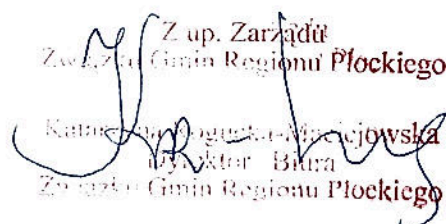 Z up. Zarządu
Związku Gmin Regionu Płockiego
Katarzyna Rogucka-Maciejowska
Dyrektor Biura
Związku Gmin Regionu Płockiego